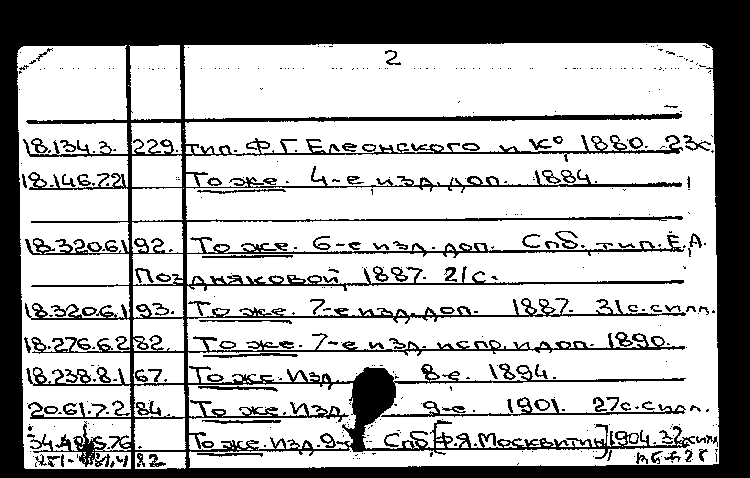 2
18.134.3. 229. тип. Ф.Г. Елеонского и К°, 1880. 23с
18.146.7.21 То же. 4-е изд. доп. 1884.
18.320.6.192. То же. 6-е изд. доп. Спб., тип. Е.А.
Поздняковой, 1887. 21с.
18.320.6.193. То же. 7-е изд. доп. 1887. 31с. с илл.
18.276.6.282. То же. 7-е изд. испр. и доп. 1890.
18.238.8.167. То же. Изд. 8-е. 1894.
20.61.7.284. То же. Изд. 9-е. 1901. 27с. с илл.
То же. Изд. 9-е Спб. [Ф.Я. Москвитин], 1904. 32с. с илл